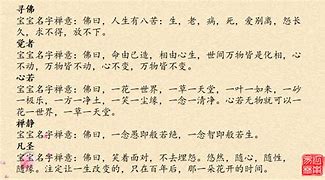 寻佛
宝宝名字禅意：佛曰，人生有八苦：生，老，病，死，爱别离，怨长
久，求不得，放不下。
觉者
宝宝名字禅意：佛曰，命由己造，相由心生，世间万物皆是化相，心
不动，万物皆不动，心不变，万物皆不变。
心若
宝宝名字禅意：佛曰，一花一世界，一草一天堂，一叶一如来，一砂
一极乐，一方一净土，一笑一尘缘，一念一清净。心若无物就可以一
花一世界，一草一天堂。
禅静
宝宝名字禅意：佛曰，一念愚即般若绝，一念智即般若生。
凡圣
宝宝名字禅意：佛曰，笑着面对，不去埋怨。悠然，随心，随性，
随缘。注定让一生改变的，只在百年后，那一朵花开的时间。